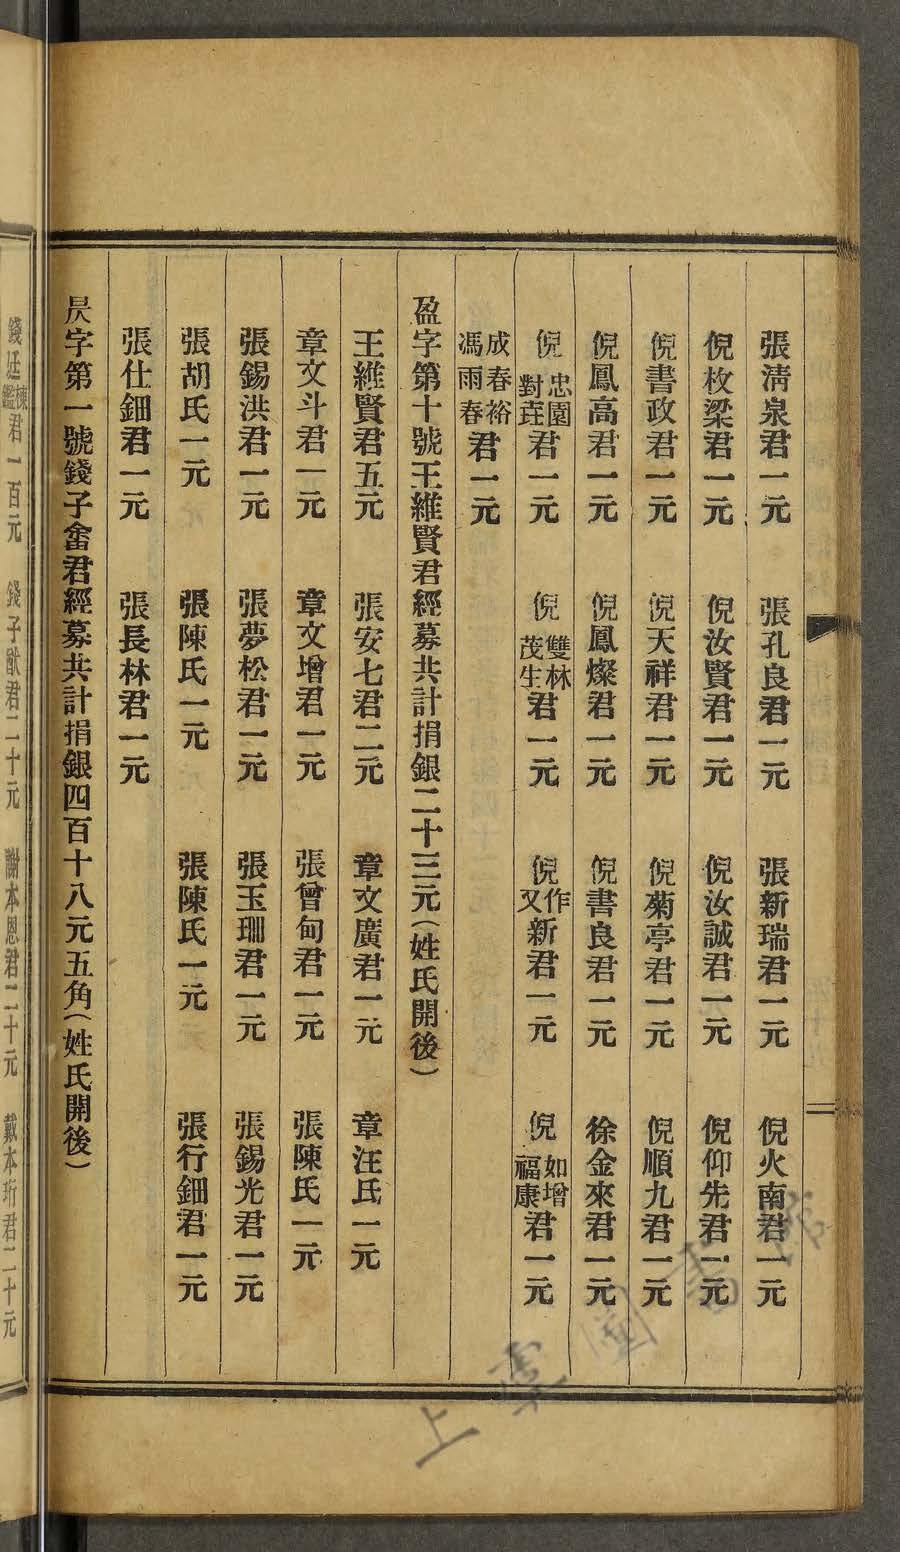 張淸泉君一元　張孔良君一元　張新瑞君一元　倪火南君一元
倪枚梁君一元　倪汝賢君一元　倪汝誠君一元　倪仰先君一元
倪書政君一元　倪天祥君一元　倪菊亭君一元　倪順九君一元
倪鳳高君一元　倪鳳燦君一元　倪書良君一元　徐金來君一元
倪忠園對莛君一元　倪雙林茂生君一元　倪作又新君一元　倪如增福康君一元
成春裕馮雨春君一元
盈字第十號王維賢君經募共計捐銀二十三元（姓氏開後）
王維賢君五元　張安七君二元　章文廣君一元　章汪氏一元
章文斗君一元　章文增君一元　張曾甸君一元　張陳氏一元
張錫洪君一元　張夢松君一元　張玉珊君一元　張錫光君一元
張胡氏一元　張陳氏一元　張陳氏一元　張行鈿君一元
張仕鈿君一元　張長林君一元
昃字第一號錢子畬君經募共計捐銀四百十八元五角（姓氏開後）
錢廷棟鑑君一百元　錢子猷君二十元　謝本恩君二十元　戴本珩君二十元
上虞圖書館